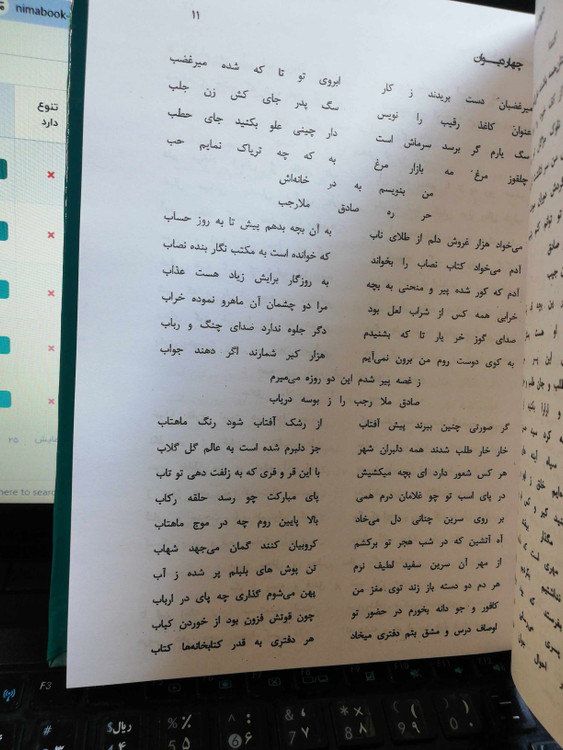 nimabook-
تنوع
دارد
۱۱
چهاردیـوان
میرغضبان دست بریدند ز کار ابروی تو تا که شده میرغضب
عنوان کاغذ رقیب را نویس سگ پدر جای کش زن جلب
سگ یارم گر برسد سرماش است دار چینی علو بکنید جای حطب
چلقوز مرغ مه بازار مرغ به که چه تریاک نمایم حب
من بنویسم به در خانه‌اش
حر ره صادق ملارجب
می‌خواد هزار غروش دلم از طلای ناب به آن بچه بدهم پیش تا به روز حساب
آدم می‌خواد کتاب نصاب را بخواند که خوانده است به مکتب نگار بنده نصاب
آدم که کور شده پیر و منحنی به بچه به روزگار برایش زیاد هست عذاب
خرابی همه کس از شراب لعل بود مرا دو چشمان آن ماهرو نموده خراب
صدای گوز خر یار تا که بشنیدم دگر جلوه ندارد صدای چنگ و رباب
به کوی دوست روم من برون نمی‌آیم هزار کیر شمارند اگر دهند جواب
ز غصه پیر شدم این دو روزه می‌میرم
صادق ملا رجب را ز بوسه دریاب
گر صورتی چنین ببرند پیش آفتاب از رشک آفتاب شود رنگ ماهتاب
خار خار طلب شدند همه دلبران شهر جز دلبرم شده است به عالم گل گلاب
هر کس شعور دارد ای بچه میکشیش با این قر و فری که به زلفت دهی تو تاب
در پای اسب تو چو غلامان درم همی پای مبارکت چو رسد حلقه رکاب
بر روی سرین چنانی دل می‌خاد بالا پایین روم چه در موج ماهتاب
آه آتشین که در شب هجر تو برکشم کروبیان کنند گمان می‌جهد شهاب
از مهر آن سرین سفید لطیف نرم تن پوش های بلبلم پر شده ز آب
هر دم دو دسته باز زند توی مغز من پهن می‌شوم گذاری چه پای در ارباب
کافور و جو دانه بخورم در حضور تو چون قوتش فزون بود از خوردن کباب
اوصاف درس و مشق یتم دفتری میخاد هر دفتری به قدر کتابخانه‌ها کتاب
۲۵
here to searc
F3
ریال